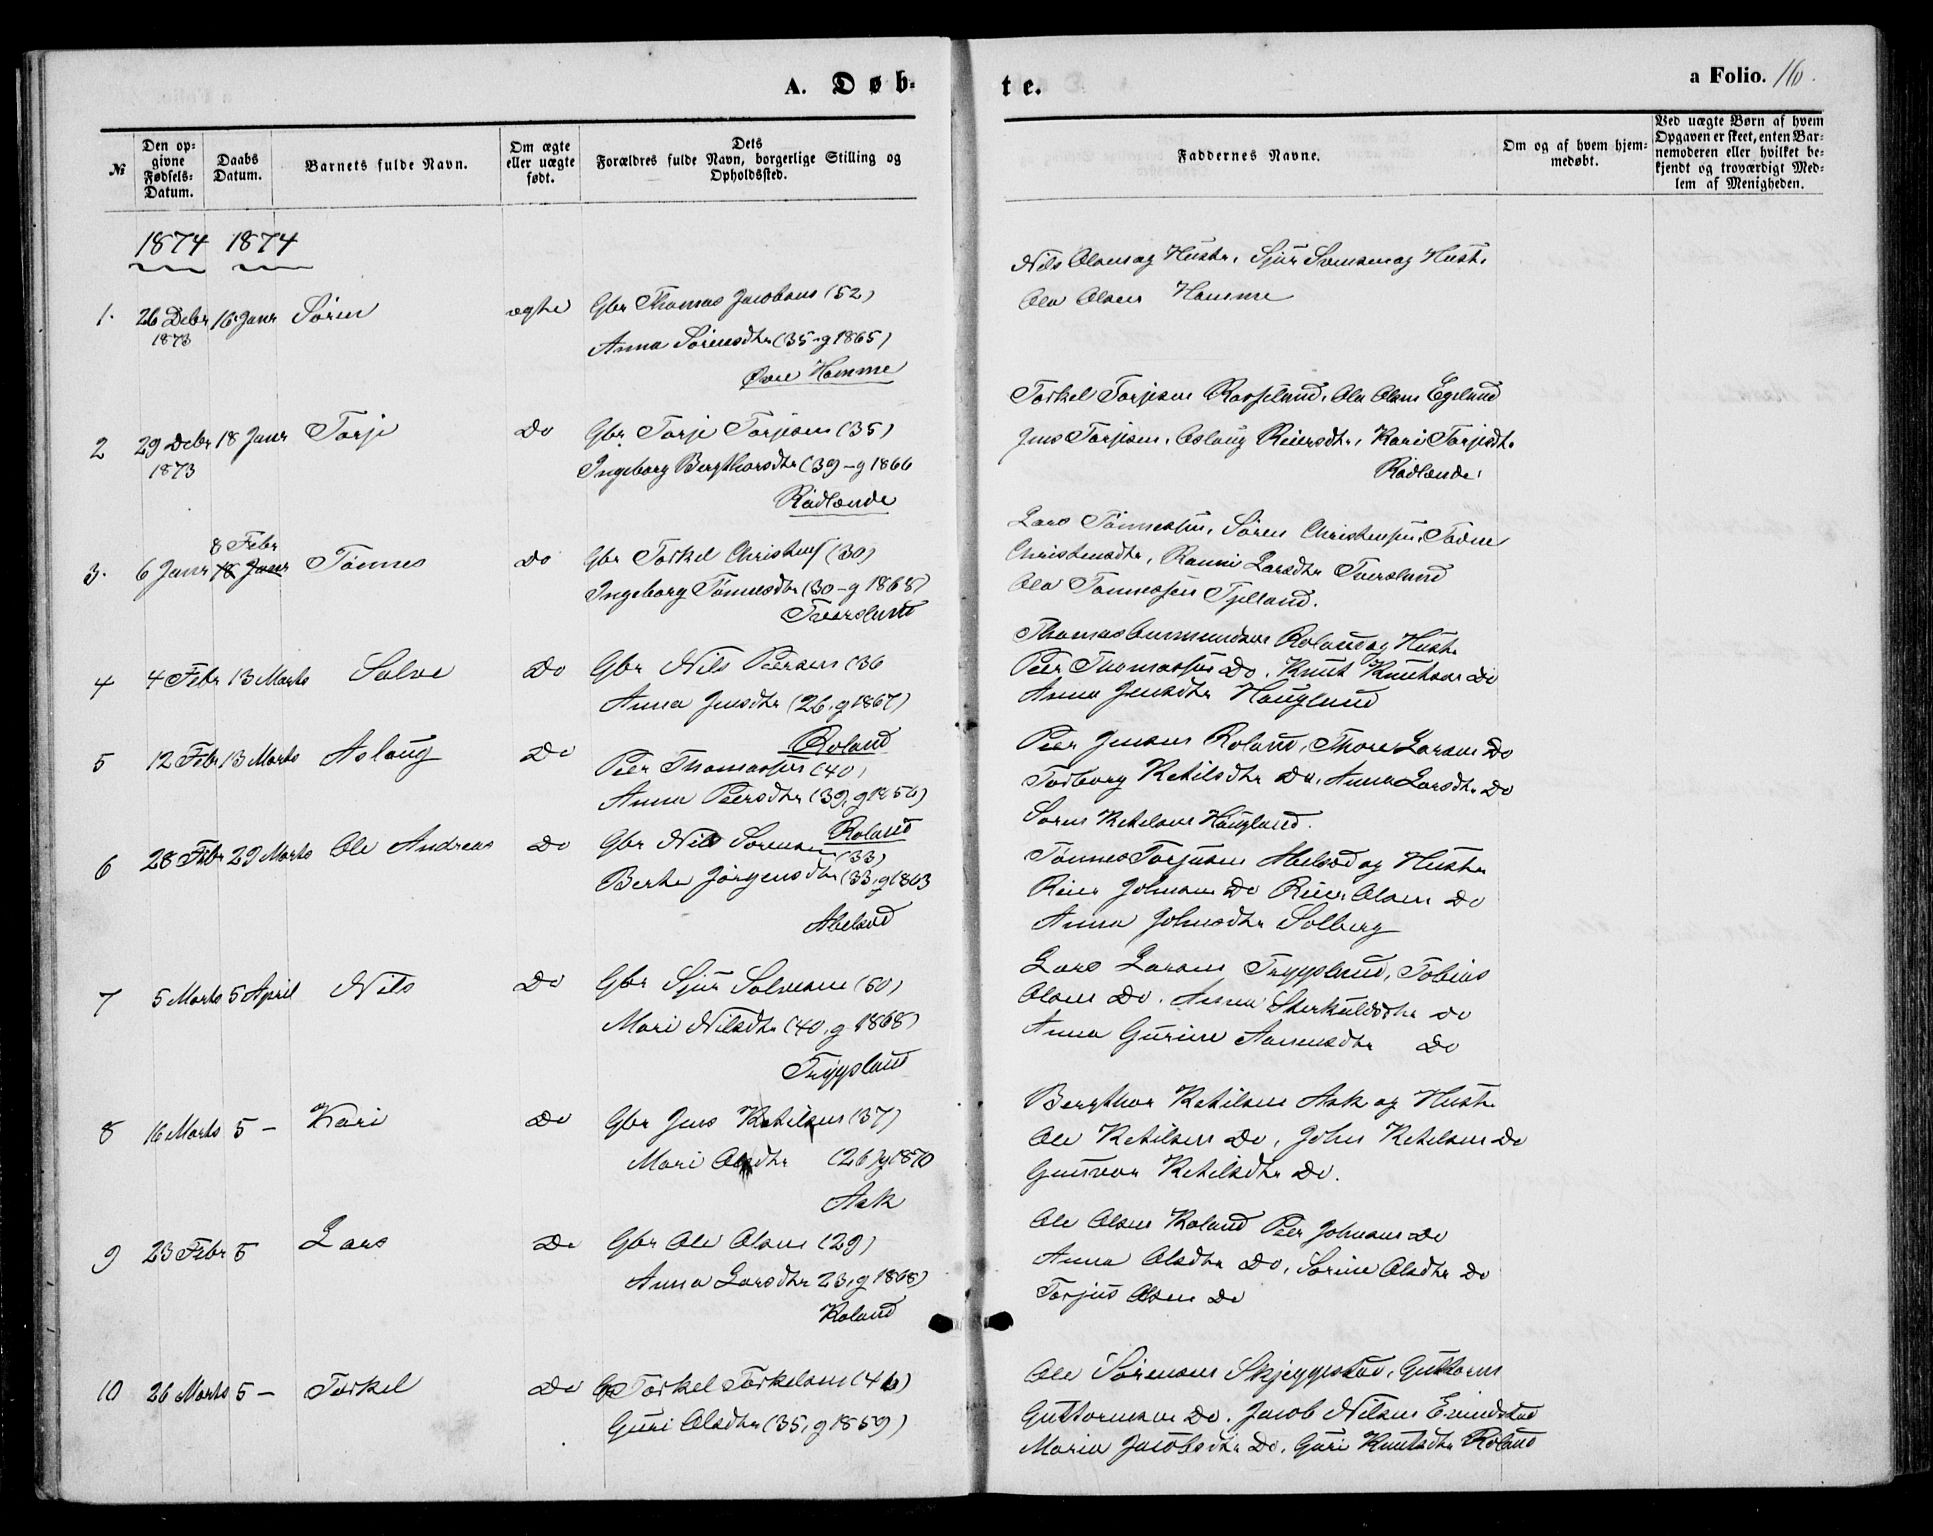 A. Døb-
№
Den op-
givne
Fødsels-
Datum.
Daabs
Datum.
Barnets fulde Navn.
Om ægte
eller uægte
født.
Dets
Forældres fulde Navn, borgerlige Stilling og
Opholdssted.
1874 1874
1. 26 Debr 16 Janr Søren ægte Gbr Thomas Jacobsens (52)
1873
Anna Sørensdtr (35 - g 1865)
Øvre Homme
2 29 Debr 18 Janr Torje Do Gbr Torje Torjesen (35)
1873 Ingeborg Bergthorsdtr (39 - g 1866
Rödlende
8 Febr
3. 6 Janr 18 Janr Tønnes Do Gbr Torkel Christens (30)
Ingeborg Tønnesdtr (30 - g 1868)
Tverslund
4 4 Febr 13 Marts Salve Do Gbr Nils Peersen (36
Anna Jensdtr (26, g 1867)
Roland
5 12 Febr 13 Marts Aslaug Do Peer Thomassen (40)
Anna Peersdtr (39, g 1856)
Roland
6 28 Febr 29 Marts Ole Andreas Do Gbr Nils Sørensen (33)
Berte Jørgensdtr (33, g 1863
Abelsød
7 5 Marts 5 April Nils Do Gbr Sjur Solvesen (50)
Mari Nilsdtr (40, g 1868)
Trygsland
8 16 Marts 5 - Kari Do Gbr Jens Ketilsen (37)
Mari Olsdtr (26) g 1870
Ask
9 23 Febr 5 Lars Do Gbr Ole Olsen (29)
Anna Larsdtr 23, g 1868)
Roland
10 26 Marts 5 - Torkel Do Torkel Torkelsen (46)
Guri Olsdtr (35, g 1859)
te.
a Folio. 16.
Faddernes Navne.
Om og af hvem hjem-
medøbt.
Ved uægte Børn af hvem
Opgaven er skeet, enten Bar-
nemoderen eller hvilket be-
kjendt og troværdigt Med-
lem af Menigheden.
Nils Olsen og Hustr. Sjur Svensen og Hustr.
Ola Olsen Homme
Torkel Torjesen Rosseland. Ole Olsen Egeland
Jens Torjesen. Aslaug Reiersdtr, Kari Torjesdtr
Rödlende.
Lars Tønnessen, Søren Christensen, Todne
Christensdtr, Ranni Larsdtr Tverslund
Ola Tønnessen Tjelland.
Thomas Gunmundsen Roland og Hustr.
Peer Thomassen Do. Knut Knutsen Do
Anna Jensdtr Houglund
Peer Jensen Roland, Thore Larsen Do
Torborg Ketilsdtr Do. Anna Larsdtr Do
Søren Ketelsen Houglund.
Tønnes Torjusen Abelsød og Hustr
Reier Johnsen Do Reier Olsen Do
Anna Johnsdtr Solberg
Lars Larsen Trygsland, Tobias
Olsen Do. Anna Sterkuldsdtr Do
Anna Gurine Aanensdtr Do
Bergthor Ketilsen Ask og Hustr.
Ole Ketilsen Do, John Ketelsen Do
Gunvor Ketilsdtr Do.
Ole Olsen Roland Peer Johnsen Do
Anna Olsdtr Do, Sørine Olsdtr Do
Torjus Olsen Do
Ole Sørensen Skjeggestad, Guttorm
Guttormsen Do. Jacob Nilsen Erindstad
Maria Jacobsdtr Do. Guri Knutsdtr Roland